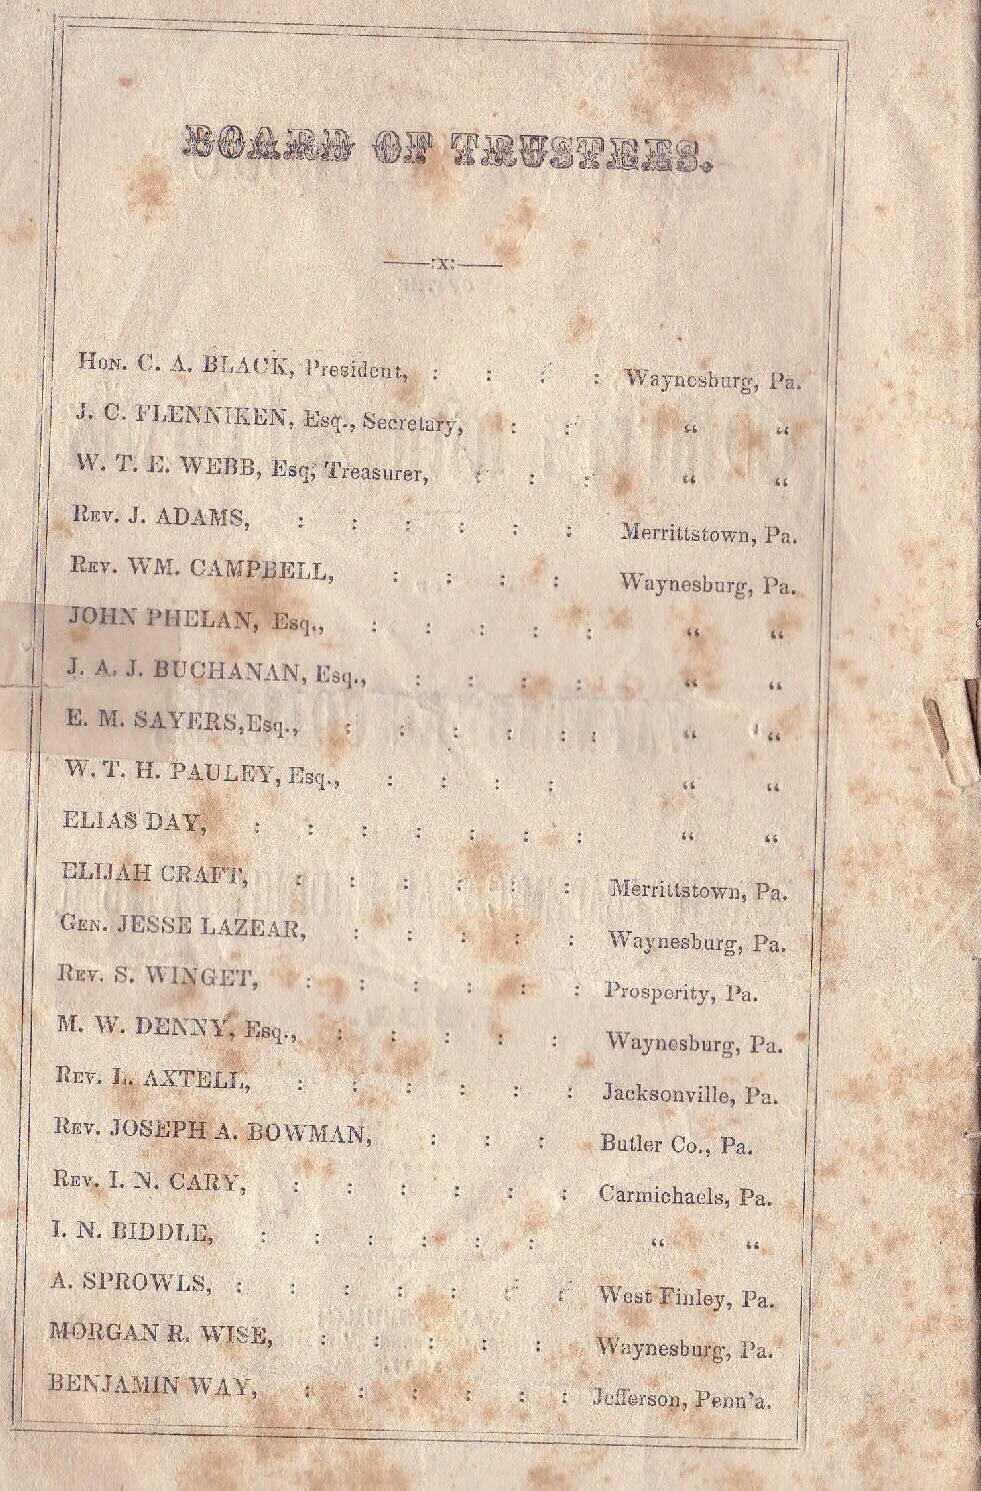 BOARD OF TRUSTEES.
:x:
Hon. C. A. BLACK, President, : : : : Waynesburg, Pa.
J. C. FLENNIKEN, Esq., Secretary, : : “ “
W. T. E. WEBB, Esq, Treasurer, : : : “ “
Rev. J. ADAMS, : : : : : : Merrittstown, Pa.
Rev. WM. CAMPBELL, : : : : Waynesburg, Pa.
JOHN PHELAN, Esq., : : : : : “ “
J. A. J. BUCHANAN, Esq., : : : : “ “
E. M. SAYERS, Esq., : : : : : : “ “
W. T. H. PAULEY, Esq., : : : : “ “
ELIAS DAY, : : : : : : : “ “
ELIJAH CRAFT, : : : : : : Merrittstown, Pa.
Gen. JESSE LAZEAR, : : : : : Waynesburg, Pa.
Rev. S. WINGET, : : : : : : Prosperity, Pa.
M. W. DENNY, Esq., : : : : : Waynesburg, Pa.
Rev. L. AXTELL, : : : : : : Jacksonville, Pa.
Rev. JOSEPH A. BOWMAN, : : : Butler Co., Pa.
Rev. I. N. CARY, : : : : : : Carmichaels, Pa.
I. N. BIDDLE, : : : : : : “ “
A. SPROWLS, : : : : : : : West Finley, Pa.
MORGAN R. WISE, : : : : : Waynesburg, Pa.
BENJAMIN WAY, : : : : : : Jefferson, Penn'a.